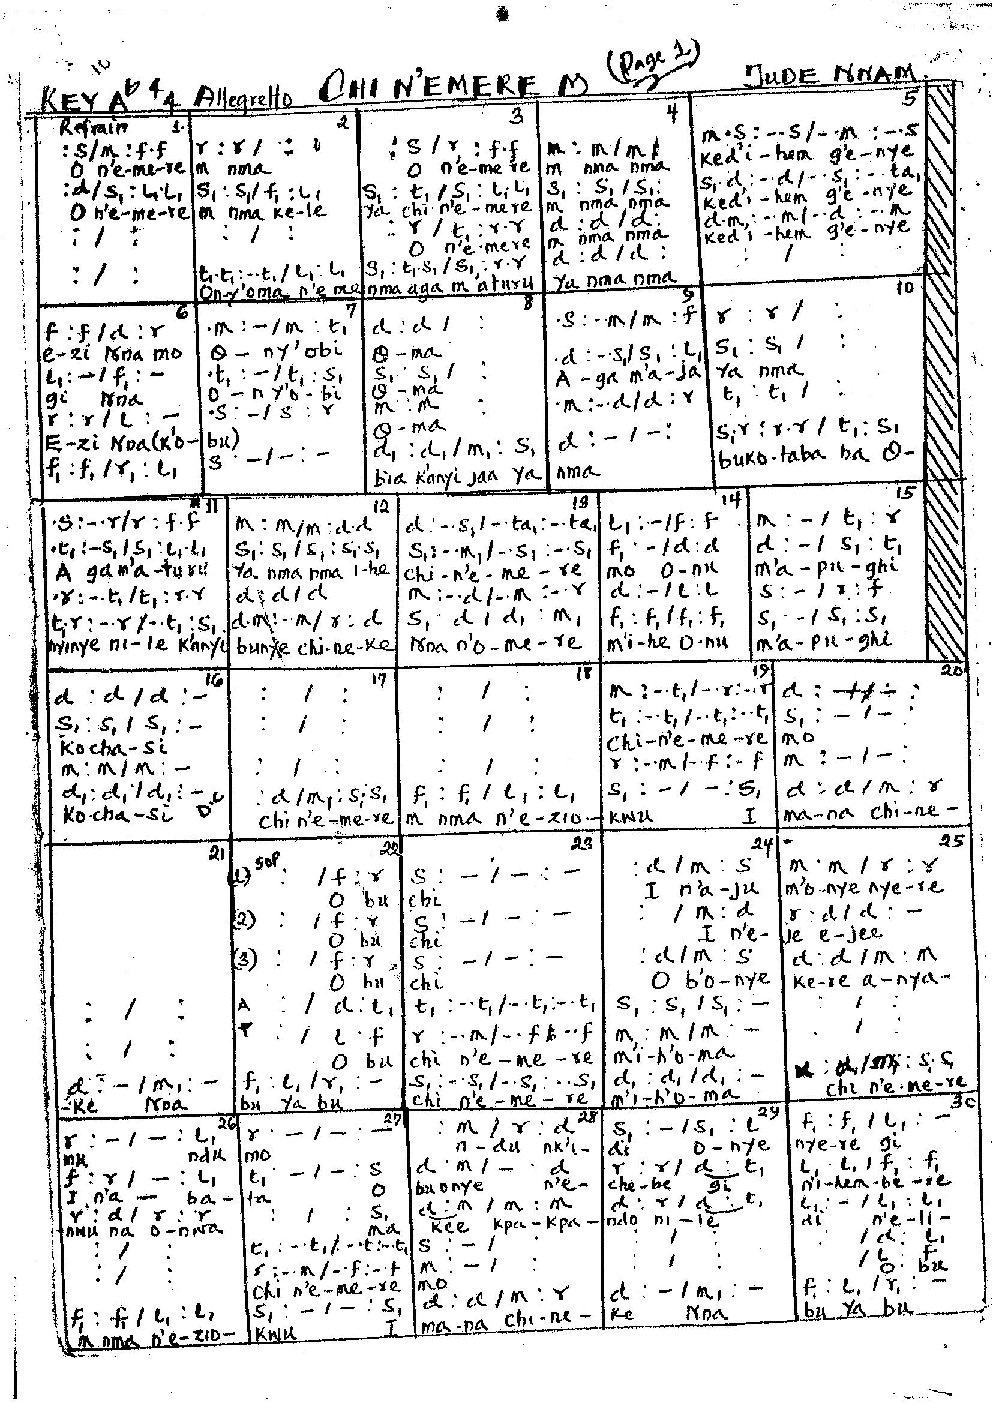 (Page 1)
KEY A♭ 4/4 Allegretto CHI N'EMERE M JUDE NNAM
Refrain 1
:S/m :f.f
O n'e-me-re
:d/S₁ :L₁L₁
O n'e-me-re
: / :
: / :
2
r : r / : :
m nma
S₁ : S₁/f₁ : L₁
m nma ke-le
: / :
t₁.t₁ :-.t₁/L₁ : L₁
On-y'oma n'e me
3
: S / r : f.f
O n'e-me re
S₁ : t₁/S₁ : L₁.L₁
Ya chi n'e-mere
: r / t₁ : r.r
O n'e-mere
S₁ : t₁S₁/S₁ : r.r
nma aga m'aturu
4
m : m/m :
m nma nma
S₁ : S₁/S₁ :
m nma nma
d : d/d :
m nma nma
d : d/d :
Ya nma nma
5
m.S : -.S/-.m : -.S
Ked'i-hem g'e-nye
S₁.d₁ : -.d/-.S₁ : -.ta₁
Ked'i-hem g'e-nye
d.m₁ : -.m/-.d : -.m
Ked'i-hem g'e-nye
: / :
6
f : f/d : r
e-zi Nna mo
L₁ : -/f₁ : -
gi Nna
r : r/L : -
E-zi Nna(k'o-
f₁ : f₁/r₁ : L₁
7
.m : -/m : t₁
O- ny'obi
.t₁ : -/t₁ : S₁
O-n'y'o-bi
.S : -/S : r
bu)
S : -/- : -
8
d : d / :
O-ma
S₁ : S₁/ :
O-ma
m : m :
O-ma
d₁ : d₁/m₁ : S₁
bia kanyi jaa ya
9
.S : -.m/m : f
.d : -.S₁/S₁ : L₁
A-ga m'a-ja
.m : -.d/d : r
d : -/- :
nma
10
r : r / :
S₁ : S₁ / :
Ya nma
t₁ : t₁ / :
S₁r : r.r/t₁ : S₁
buko-taba ba O-
11
.S : -.r/r : f.f
.t₁ : -.S₁/S₁ : L₁.L₁
A gam'a-turu
.r : -.t₁/t₁ : r.r
t₁.r : -.r/-.t₁ : S₁
nyinye ni-le k'anyi
12
m : m/m : d.d
S₁ : S₁/S₁ : S₁.S₁
Ya nma nma I-he
d : d/d
d.m : -.m/r : d
bunye chi-ne-ke
13
d : -.S₁/-.ta₁ : -.ta₁
S₁ : -.m₁/-.S₁ : -.S₁
chi-n'e-me-re
m : -.d/-.m : -.r
S₁ : d₁/d₁ : m₁
Nna n'o-me-re
14
L₁ : -/f : f
f₁ : -/d : d
mo O-nu
d : -/L : L
f₁ : f₁/f₁ : f₁
m'i-he O-nu
15
m : -/t₁ : r
d : -/S₁ : t₁
m'a-pu-ghi
S : -/r : f
S₁ : -/S₁ : S₁
m'a-pu-ghi
16
d : d/d : -
S₁ : S₁/S₁ : -
Kocha-si
m : m/m : -
d₁ : d₁/d₁ : -
Ko cha-si D.C
17
: / :
: / :
: / :
: d/m₁ : S₁S₁
Chi n'e-me-re
18
: / :
: / :
: / :
f₁ : f₁/L₁ : L₁
m nma n'e-zio-
19
m : -.t₁/-.r : -.r
t₁ : -.t₁/-.t₁ : -.t₁
Chi-n'e-me-re
r : -.m/-.f : -.f
S₁ : -/- : S₁
kwu I
20
d : -/- :
S₁ : -/- :
mo
m : -/- :
d : d/m : r
ma-na chi-ne-
21
: / :
: / :
d : -/m₁ : -
-ke Nna
22
(1) Sop : /f : r
O bu
(2) : /f : r
O bu
(3) : /f : r
O bu
A : /d : L₁
T : /L f
O bu
f₁ : L₁/r₁ : -
bu Ya bu
23
S : -/- : -
chi
S : -/- : -
chi
S : -/- : -
chi
t₁ : -.t₁/-.t₁ : -.t₁
r : -.m/-.f : -.f
chi n'e-me-re
S₁ : -.S₁/-.S₁ : -.S₁
chi n'e-me-re
24
: d/m : S
I n'a-ju
: /m : d
I n'e-
: d/m : S
O b'o-nye
S₁ : S₁/S₁ : -
m : m/m : -
m'i-h'o-ma
d₁ : d₁/d₁ : -
m'i-h'o-ma
25
m : m/r : r
m'o-nye nye-re
r : d/d : -
je e-jee
d : d/m : m
ke-re a-nya-
: / :
: / :
: d₁/m₁ : S.S₁
chi n'e-me-re
26
r : -/- : L₁
mu ndu
f : r/ - : L₁
I n'a- ba-
r : d/r : r
nwu na o-nwa
: / :
: / :
f₁ : f₁/L₁ : L₁
m nma n'e-zio-
27
r : -/- : -
mo
t₁ : -/- : S
ta O
: / : S₁
ma
t₁ : -.t₁/-.t₁ : -.t₁
r : -.m/-.f : -.f
chi n'e-me-re
S₁ : -/- : S₁
kwu I
28
: m/r : d
n-du nk'i-
d : m/- : d
buonye n'e-
d : m/m : m
kee kpa-kpa-
S : -/ :
m : -/ :
mo
d : d/m : r
ma-na chi-ne-
29
S₁ : -/S₁ : L
di O-nye
r : r/d : t₁
che-be gi
d : r/d : t₁
ndo ni-le
: / :
: / :
d : -/m₁ : -
ke Nna
30
f₁ : f₁/L₁ : -
nye-re gi
L₁ : L₁/f₁ : f₁
n'i-hem be-re
L₁ : -/L₁ : L₁
di n'e-li-
/d : L₁
/L f
O bu
f₁ : L₁/r₁ : -
bu Ya bu